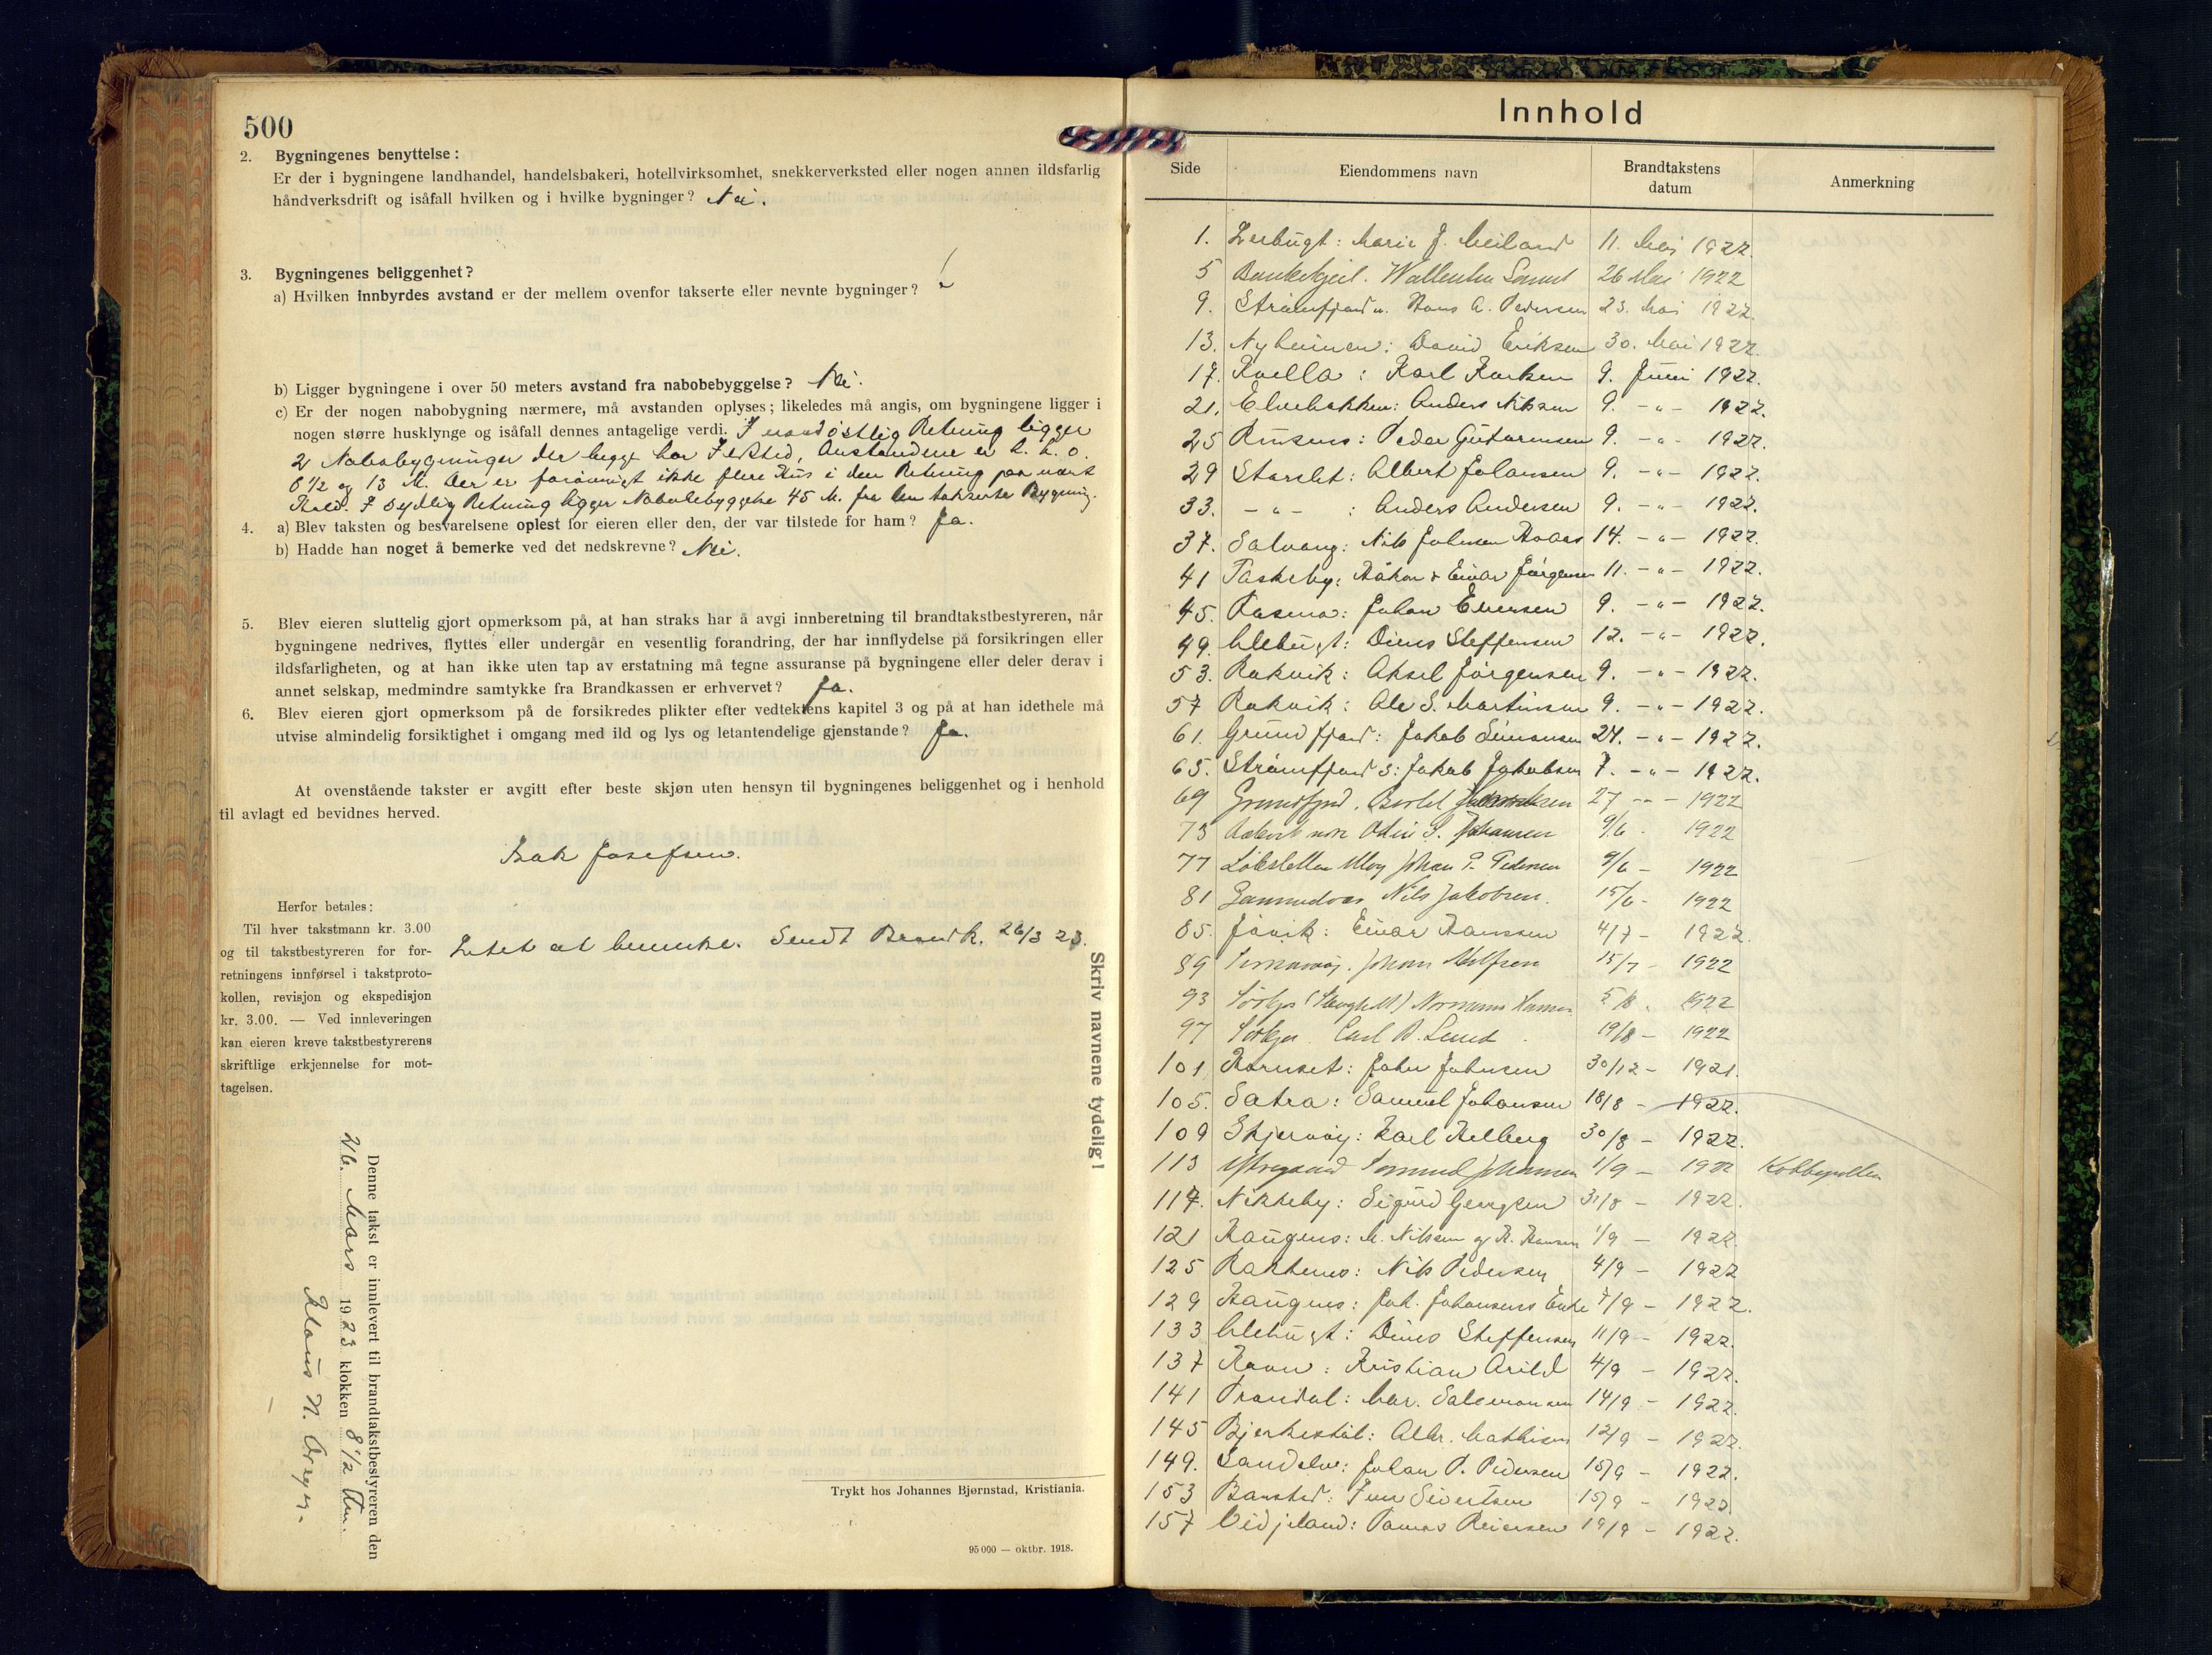 500
2. Bygningenes benyttelse:
Er der i bygningene landhandel, handelsbakeri, hotellvirksomhet, snekkerverksted eller nogen annen ildsfarlig
håndverksdrift og isåfall hvilken og i hvilke bygninger? Nei.
3. Bygningenes beliggenhet?
a) Hvilken innbyrdes avstand er der mellem ovenfor takserte eller nevnte bygninger?
b) Ligger bygningene i over 50 meters avstand fra nabobebyggelse? Nei.
c) Er der nogen nabobygning nærmere, må avstanden oplyses; likeledes må angis, om bygningene ligger i
nogen større husklynge og isåfall dennes antagelige verdi. I nordöstlig Retning ligger
2 Nabobygninger der begge har Ildsted, Avstandene er h. h. o.
6 1/2 og 13 M. Der er forövrigt ikke flere Hus i den Retning paa nært
Hold. I sydlig Retning ligger Nabobebyggelse 45 M. fra den takserte Bygning.
4. a) Blev taksten og besvarelsene oplest for eieren eller den, der var tilstede for ham? Ja.
b) Hadde han noget å bemerke ved det nedskrevne? Nei.
5. Blev eieren sluttelig gjort opmerksom på, at han straks har å avgi innberetning til brandtakstbestyreren, når
bygningene nedrives, flyttes eller undergår en vesentlig forandring, der har innflydelse på forsikringen eller
ildsfarligheten, og at han ikke uten tap av erstatning må tegne assuranse på bygningene eller deler derav i
annet selskap, medmindre samtykke fra Brandkassen er erhvervet? Ja.
6. Blev eieren gjort opmerksom på de forsikredes plikter efter vedtektens kapitel 3 og på at han idethele må
utvise almindelig forsiktighet i omgang med ild og lys og letantendelige gjenstande? Ja.
At ovenstående takster er avgitt efter beste skjøn uten hensyn til bygningenes beliggenhet og i henhold
til avlagt ed bevidnes herved.
Isak Josefsen.
Herfor betales:
Til hver takstmann kr. 3.00
og til takstbestyreren for for-
retningens innførsel i takstproto-
kollen, revisjon og ekspedisjon
kr. 3.00. — Ved innleveringen
kan eieren kreve takstbestyrerens
skriftlige erkjennelse for mot-
tagelsen.
Intet at bemerke. Sendt Brandk. 26/3 23.
Skriv navnene tydelig!
Denne takst er innlevert til brandtakstbestyreren den
26. Mars 1923 klokken 8 1/2 Fm.
Klaus N.
Trykt hos Johannes Bjørnstad, Kristiania.
95 000 — oktbr. 1918.
Innhold
Side Eiendommens navn Brandtakstens datum Anmerkning
1. Leirbugt: Marie J. Meiland 11. Mai 1922
5 26 Mai 1922
9. Strömfjord n. Hans A. Pedersen 23. Mai 1922.
13. Nyheimen: David Eriksen 30. Mai 1922.
17. Kvella: Karl Karlsen 9. Juni 1922.
21. Elvebakken: Anders Nilsen 9. -"- 1922.
25 Peder 9. -"- 1922.
29 Storslet: Albert Johansen 9. -"- 1922.
33. -"- : Anders Andersen 9. -"- 1922.
37. Solvang: Nils Johnsen 14. -"- 1922.
41 Taskeby: Håkon & Einar Jörgensen 11. -"- 1922.
45. Johan 9. -"- 1922.
49. Dines Steffensen 12. -"- 1922.
53. Rakvik: Aksel Jörgensen 9. -"- 1922.
57 Rakvik: Ole S. Martinsen 9. -"- 1922.
61. Grundfjord: Jakob Simonsen 24. -"- 1922.
65. Strömfjord s: Jakob Jakobsen 7. -"- 1922.
69 Grundfjord. Bertel 27 -"- 1922
73 Odin S. Johansen 9/6 - 1922
77 Johan P. Pedersen 9/6 - 1922
81 Nils Jakobsen. 15/6 - 1922
85. Jövik: Einar Hanssen 4/7 - 1922.
89 Johan 15/7 - 1922
93 Normann Hansen 5/8 - 1922
97 Carl B. Lund 19/8 - 1922
101 John Johnsen 30/12 - 1921.
105. Satra: Samuel Johansen 18/8 - 1922.
109 Skjervöy: Karl Helberg 30/8 - 1922.
113 1/9 - 1922
117. Nikkeby: Sigurd Georgsen 31/8 - 1922.
121 Haugnes: M. Nilssen og H. Hansen 1/9 - 1922.
125 Nils Pedersen 4/9 - 1922
129 Haugnes: Joh. Johansens Enke 7/9 - 1922.
133 Dines Steffensen 11/9 - 1922.
137 Havn: Kristian Arild 4/9 - 1922.
141 Mar. Salomonsen 14/9 - 1922.
145 Albr. Mathisen 12/9 - 1922.
149. Sandelv: Johan P. Pedersen 15/9 - 1922.
153 Iver Sivertsen 15/9 - 1922
157 Reiersen 19/9 - 1922.